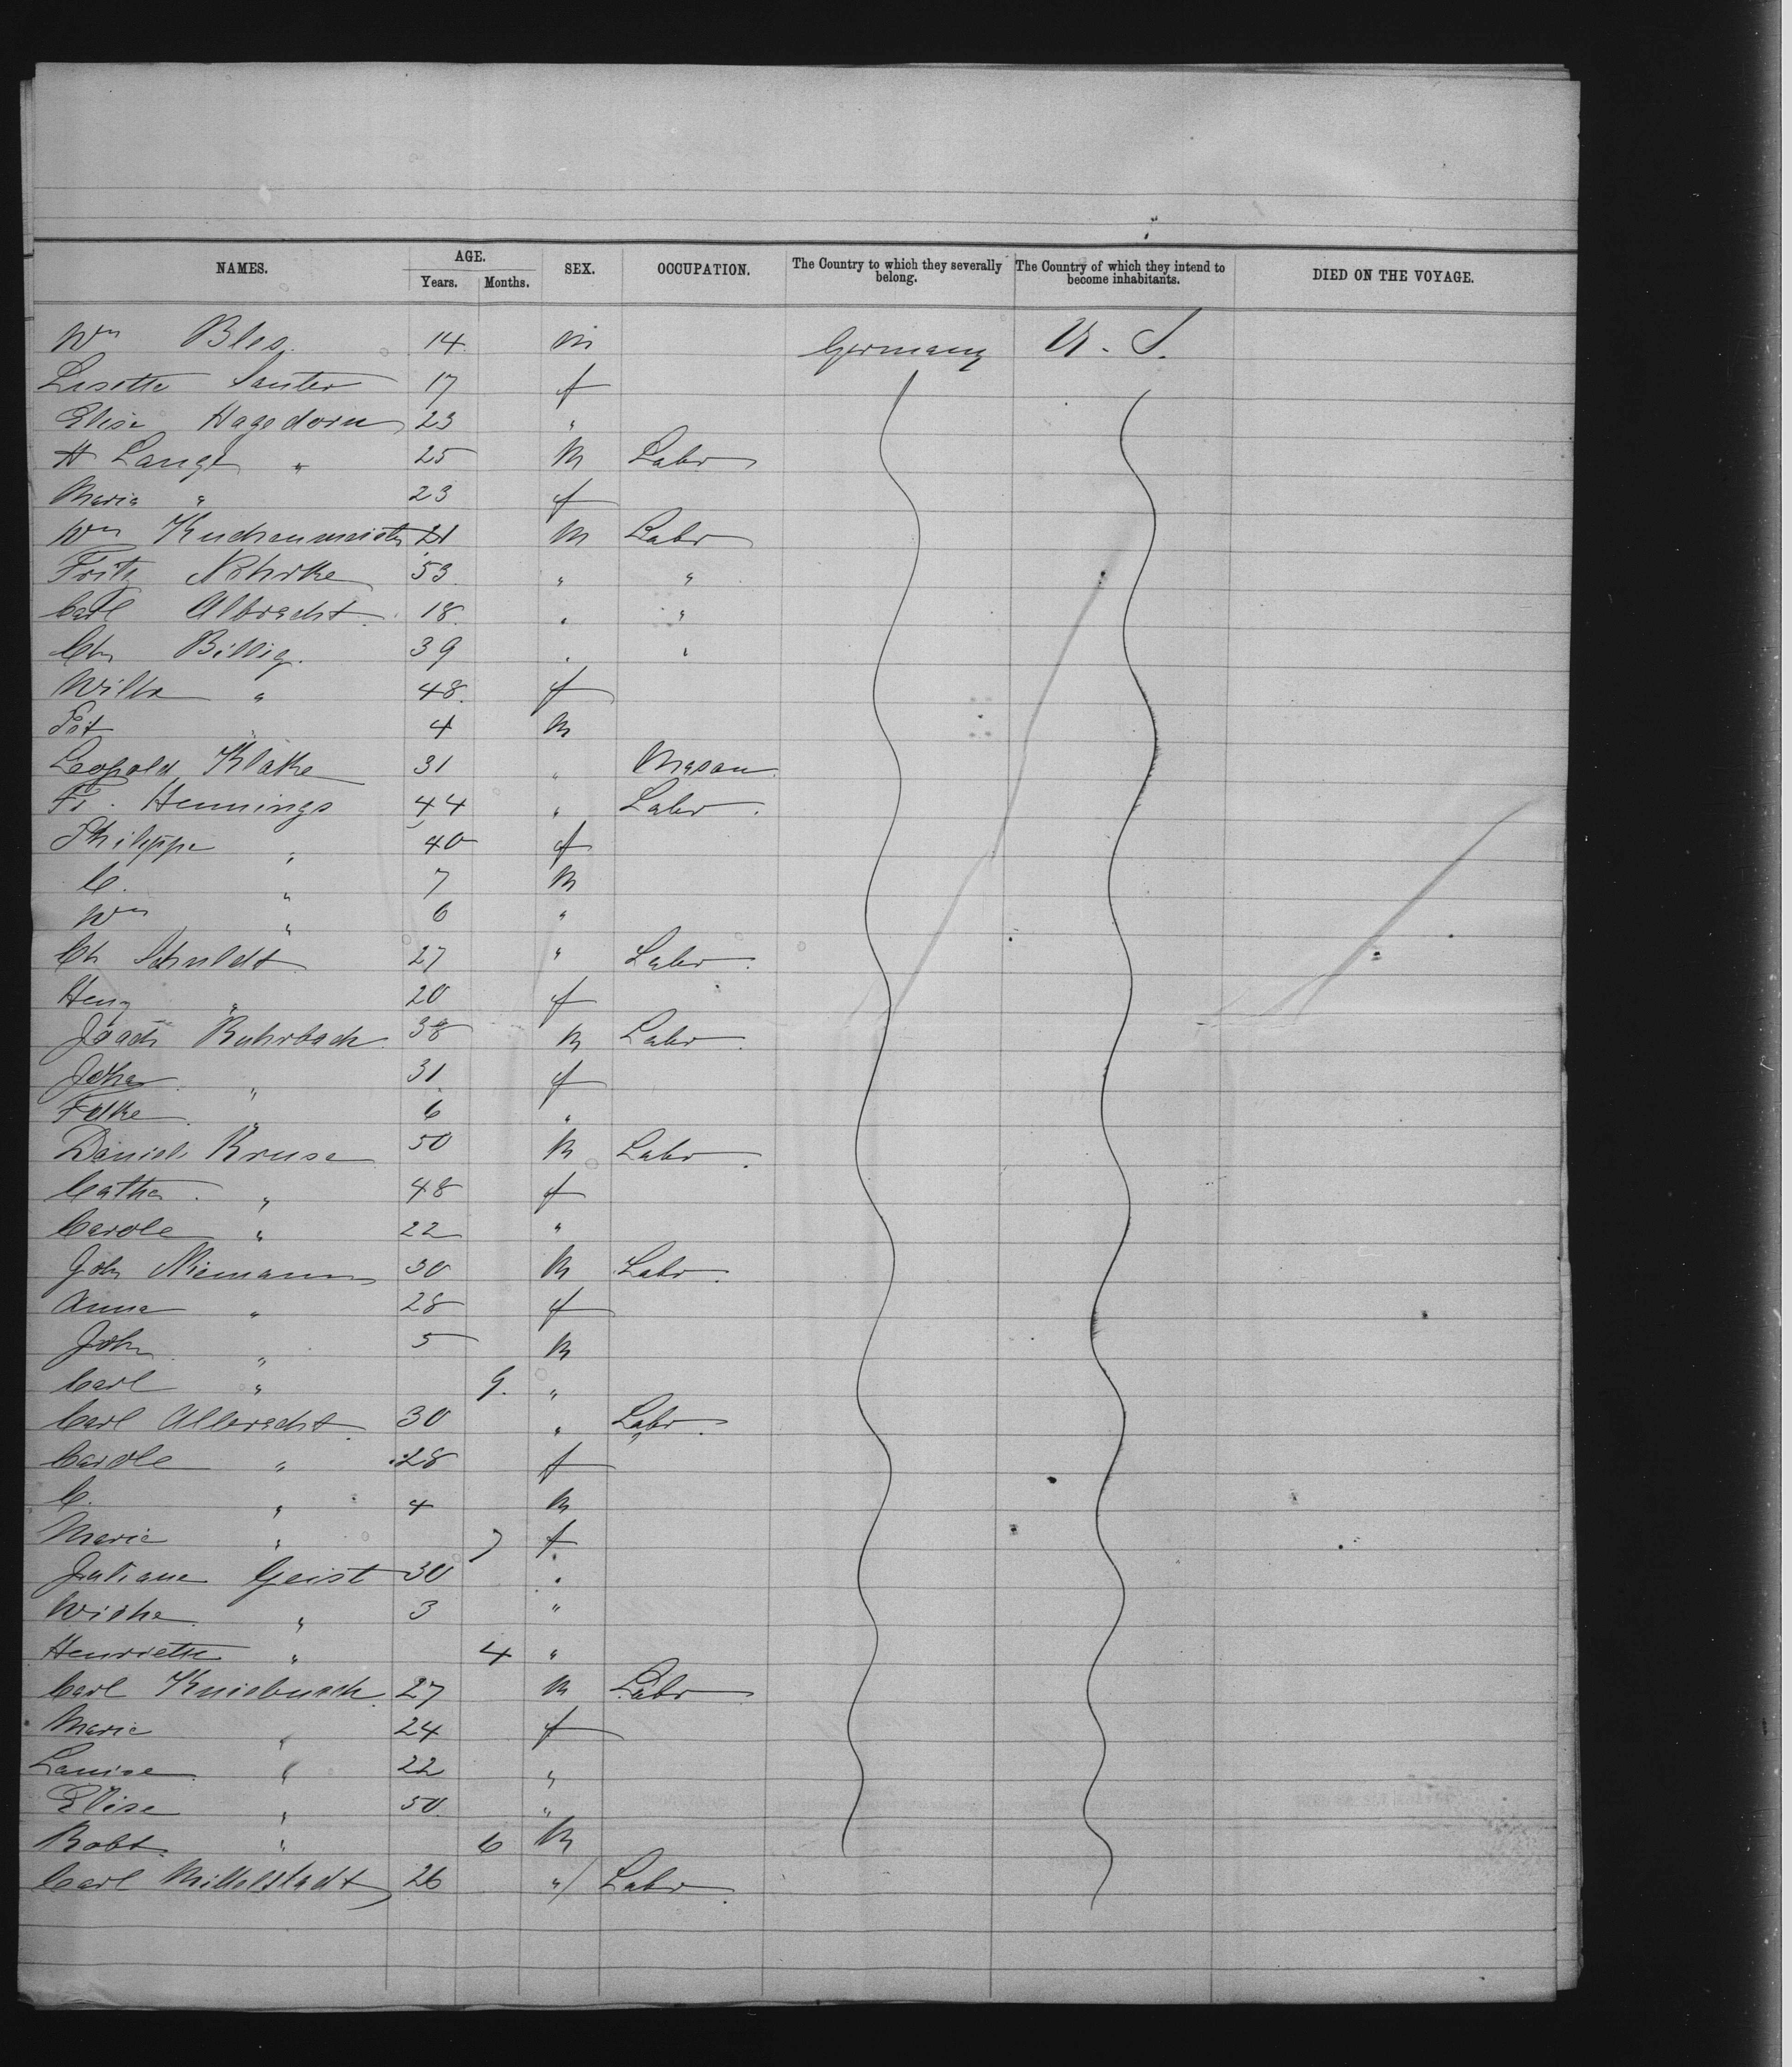 NAMES. AGE. SEX. OCCUPATION. The Country to which they severally belong. The Country of which they intend to become inhabitants. DIED ON THE VOYAGE.
Years. Months.
Wm Bles. 14 m Germany U. S.
Lisette Sauter 17 f
Elise Hagedorn 23 "
H Lange " 25 M Labr
Maria " 23 f
Wm Kuchenmeister 21 M Labr
Fritz Nöhrke 53 " "
Carl Albrecht 18 " "
Chr Billig. 39 " "
Wilha " 48 f
4 M
Leopold Klatke 31 " Mason
Fr. Hennings 44 " Labr.
Philippe " 40 f
C. " 7 M
Wm " 6 "
Ch Schuldt 27 " Labr.
Heny " 20 f
Joach Ruhrbach 38 M Labr.
Joha " 31 f
" 6 "
Daniel Kruse 50 M Labr.
Catha. " 48 f
Carole " 22 "
Joh Niemann 30 M Labr.
Anna " 28 f
Joh " 5 M
Carl " 9. "
Carl Albrecht 30 " Labr.
Carole " 28 f
C. " 4 M
Marie " 7 f
Juliane Geist 30 "
" 3 "
Henriette " 4 "
Carl Kniebusch 27 M Labr
Marie " 24 f
Louise " 22 "
Elise " 50 "
Robt. " 6 M
Carl Mittelstadt 26 " Labr.